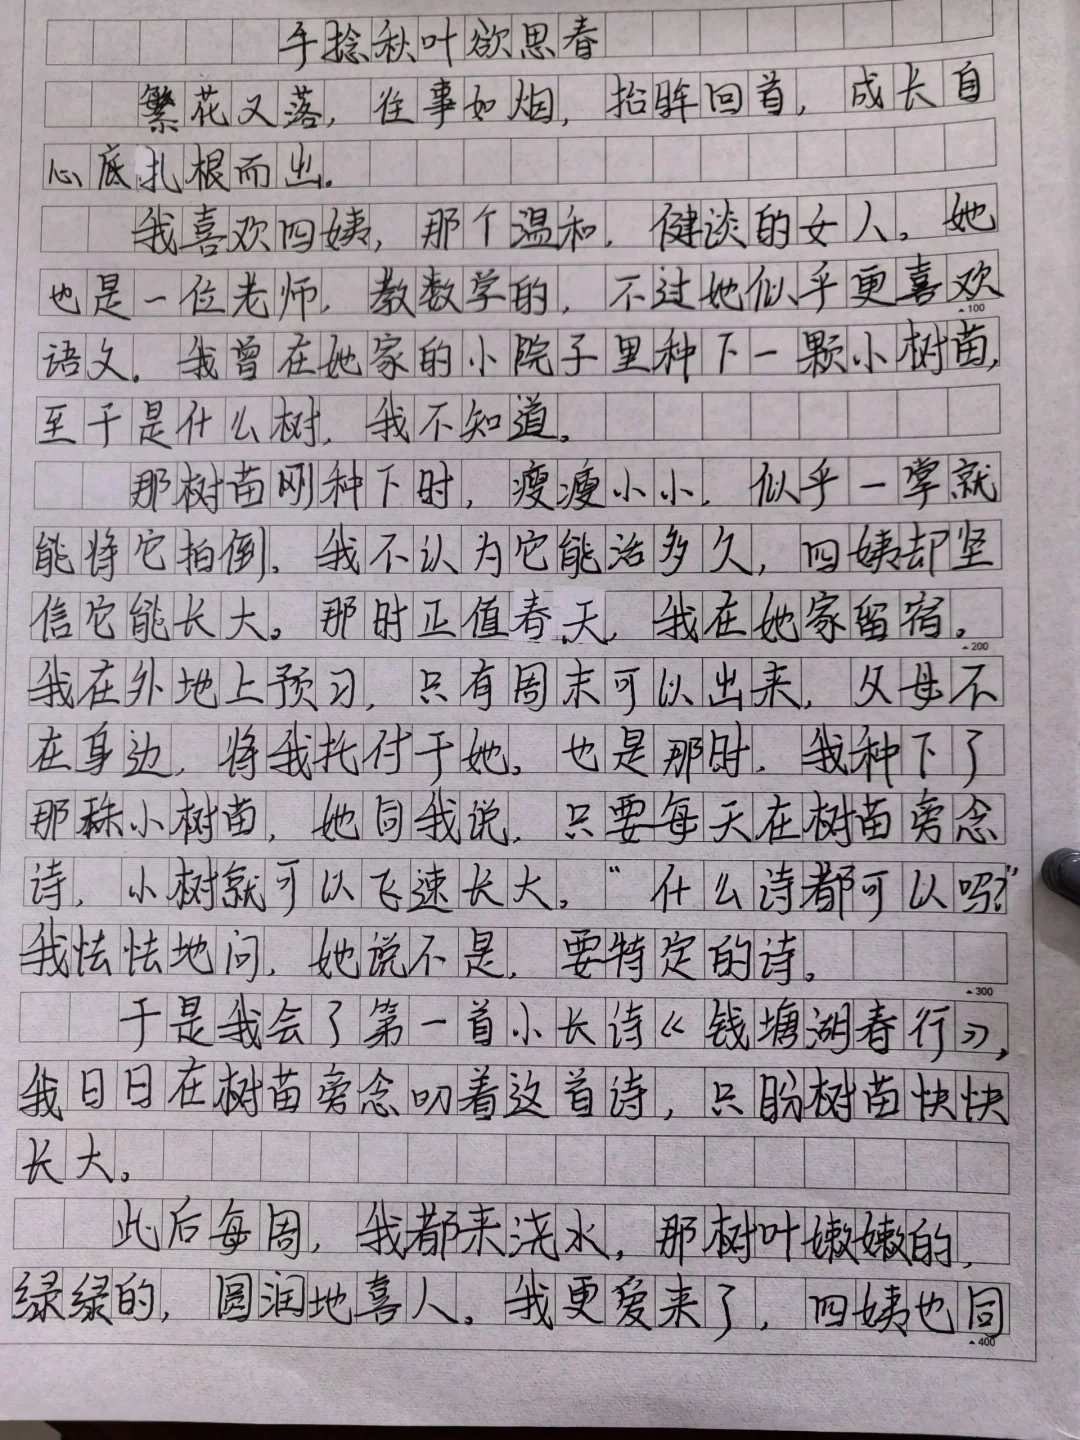 手捻秋叶欲思春
繁花又落,往事如烟,抬眸回首,成长自
心底扎根而出。
我喜欢四姨,那个温和,健谈的女人。她
也是一位老师,教数学的,不过她似乎更喜欢
100
语文。我曾在她家的小院子里种下一颗小树苗,
至于是什么树,我不知道。
那树苗刚种下时,瘦瘦小小,似乎一掌就
能将它拍倒。我不认为它能活多久,四姨却坚
信它能长大。那时正值春天,我在她家留宿。
200
我在外地上预习,只有周末可以出来,父母不
在身边,将我托付于她。也是那时,我种下了
那株小树苗,她同我说,只要每天在树苗旁念
诗,小树就可以飞速长大。“什么诗都可以吗?”
我怯怯地问,她说不是,要特定的诗。
300
于是我会了第一首小长诗《钱塘湖春行》,
我日日在树苗旁念叨着这首诗,只盼树苗快快
长大。
此后每周,我都来浇水,那树叶嫩嫩的,
绿绿的,圆润地喜人。我更爱来了,四姨也同
400